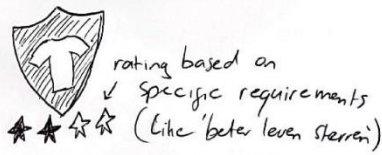 rating based on
specific requirements
(like 'beter leven sterren')